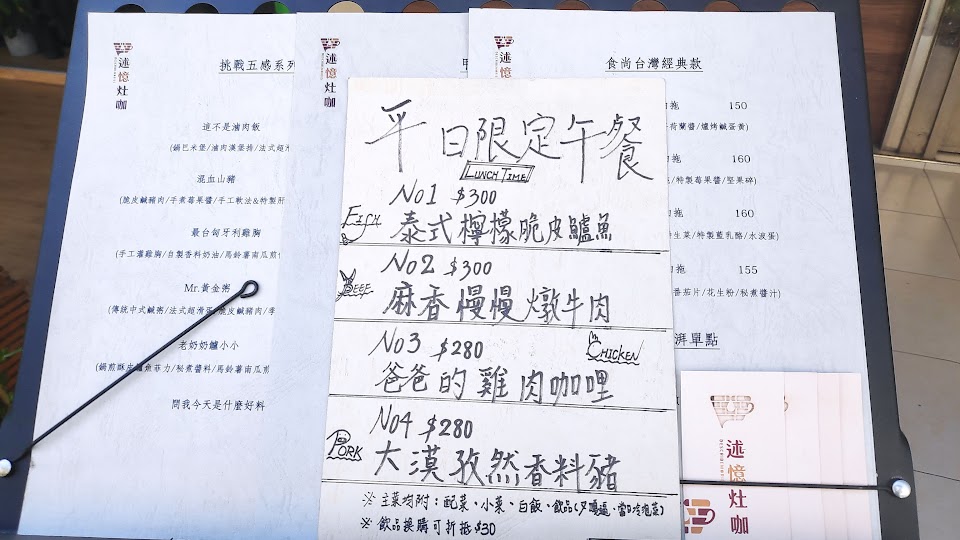 述憶灶咖
挑戰五感系列
這不是滷肉飯
(鍋巴米堡/滷肉漢堡排/法式超滑
混血山豬
(脆皮鹹豬肉/手煮莓果醬/手工軟法&特製肝
最台匈牙利雞胸
(手工灌雞胸/自製香料奶油/馬鈴薯南瓜煎
Mr.黃金粥
(傳統中式鹹粥/法式超滑蛋/脆皮鹹豬肉/季
老奶奶鱸小小
(鍋煎酥皮鱸魚菲力/秘煮醬料/馬鈴薯南瓜煎
問我今天是什麼好料
述憶灶咖
述憶灶咖
食尚台灣經典款
150
荷蘭醬/爐烤鹹蛋黃)
160
/特製莓果醬/堅果碎)
160
生菜/特製藍乳酪/水波蛋)
155
番茄片/花生粉/秘煮醬汁)
湃單點
平日限定午餐
LUNCH TIME
No1 $300
FISH
泰式檸檬脆皮鱸魚
No2 $300
BEEF
麻香慢慢燉牛肉
No3 $280
CHICKEN
爸爸的雞肉咖哩
No4 $280
PORK
大漠孜然香料豬
※ 主菜均附：配菜、小菜、白飯、飲品
※ 飲品換購可折抵$30
述憶灶咖